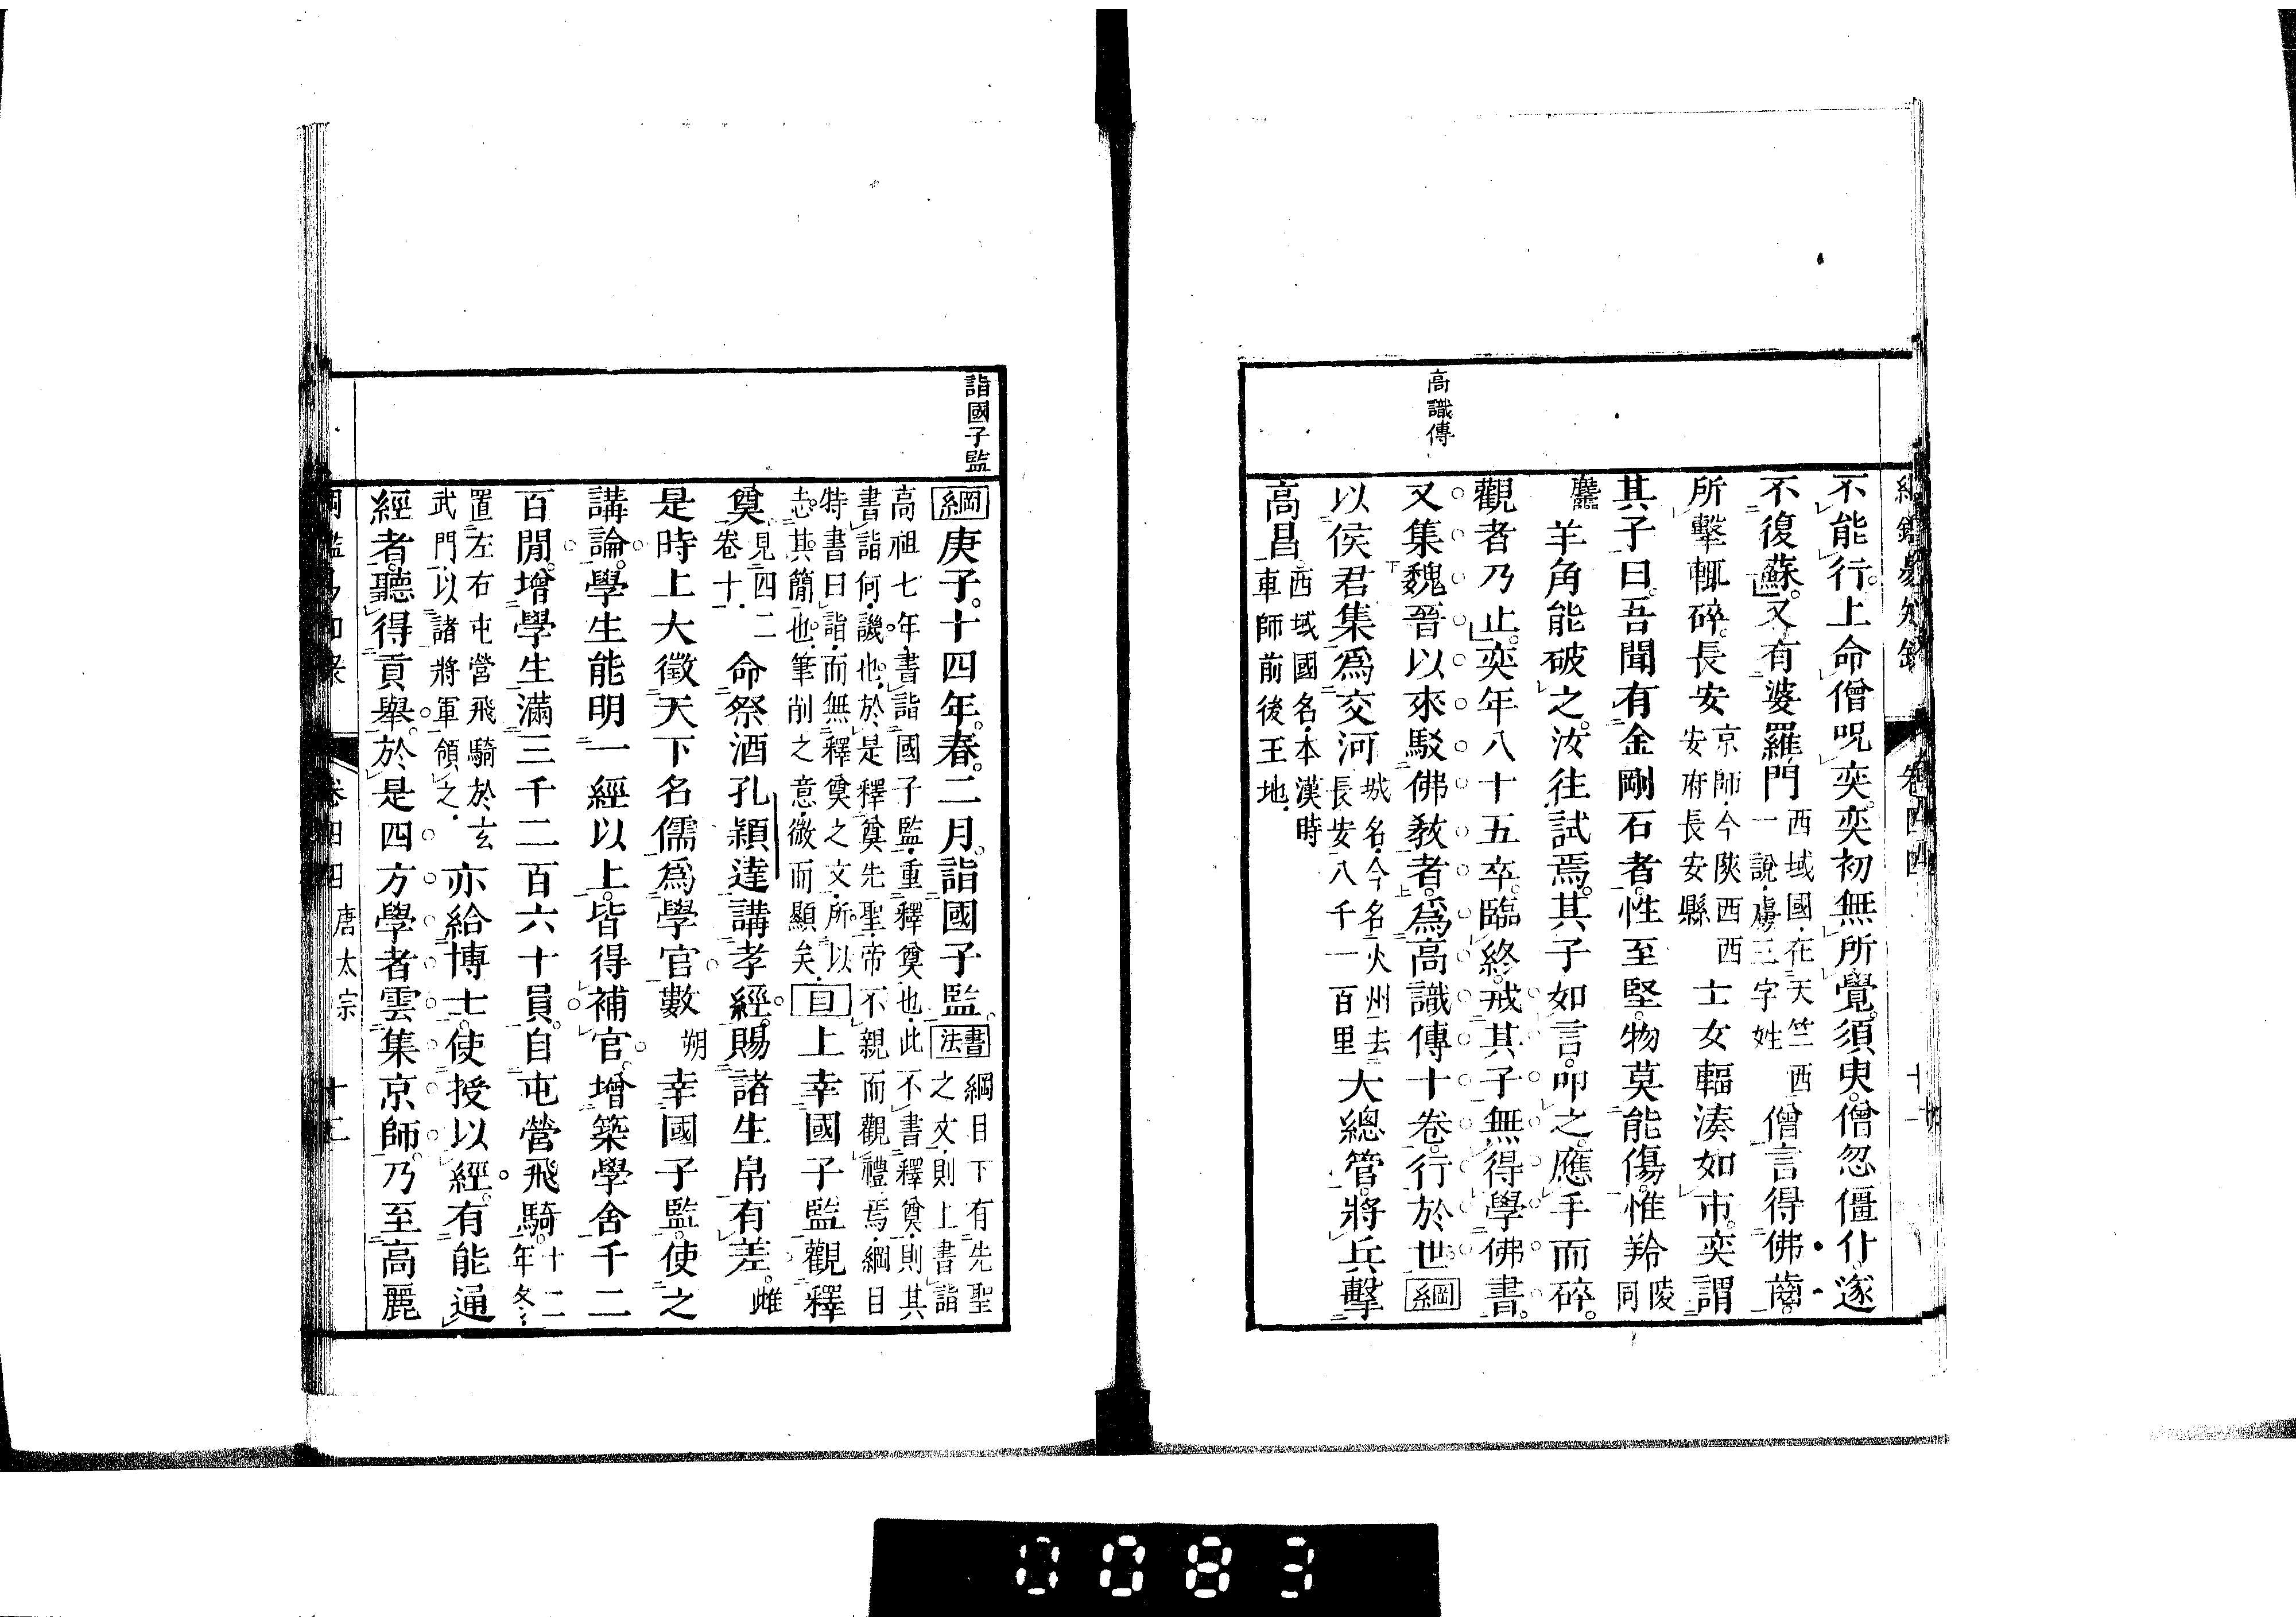 綱鑑易知錄 卷四四 十一
高識傳
不能行。上命僧呪奕。奕初無所覺。須臾。僧忽僵仆。遂
不復蘇。又有婆羅門西域國。在天竺西一說。虜三字姓僧言得佛齒。
所擊輒碎。長安京師。今陝西西安府長安縣士女輻湊如市。奕謂
其子曰。吾聞有金剛石者。性至堅。物莫能傷。惟羚陵同
麢羊角能破之。汝往試焉。其子如言。叩之。應手而碎。
觀者乃止。奕年八十五卒。臨終。戒其子無得學佛書。
又集魏晉以來駁佛敎者。爲高識傳十卷。行於世。綱
以侯君集爲交河城名。今名火州去長安八千一百里大總管。將兵擊
高昌。西域國名。本漢時車師前後王地。
詣國子監
綱庚子。十四年。春。二月。詣國子監。書法綱目下有先聖之文。則上書詣
高祖七年。書詣國子監。重釋奠也。此不書釋奠。則其
書詣何。譏也。於是釋奠先聖。帝不親而觀禮焉。綱目
特書曰詣。而無釋奠之文。所以
志其簡也。筆削之意。微而顯矣。目上幸國子監觀釋
奠。見四二卷十一。命祭酒孔穎達講孝經。賜諸生帛有差。雌
是時上大徵天下名儒爲學官。數朔幸國子監。使之
講論。學生能明一經以上。皆得補官。增築學舍千二
百間。增學生滿三千二百六十員。自屯營飛騎。十二年冬。
置左右屯營飛騎於玄武門。以諸將軍領之。亦給博士。使授以經。有能通
經者。聽得貢舉。於是四方學者雲集京師。乃至高麗
卷四四 唐太宗 十二